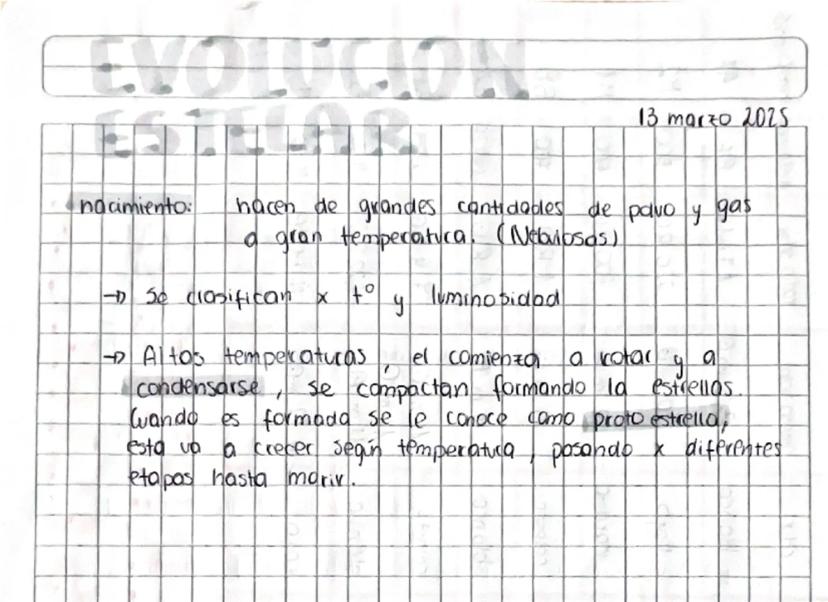 EVOLUCION
ESTELAR
13 marzo 2025
nacimiento: nacen de grandes cantidades de polvo y gas
a gran temperatura. (Nebulosas)
→ Se clasifican x t° y luminosidad
→ Altas temperaturas, el comienza a rotar y a
condensarse, se compactan formando la estrellas.
Cuando es formada se le conoce como proto estrella,
esta va a crecer según temperatura, pasando x diferentes
etapas hasta morir.